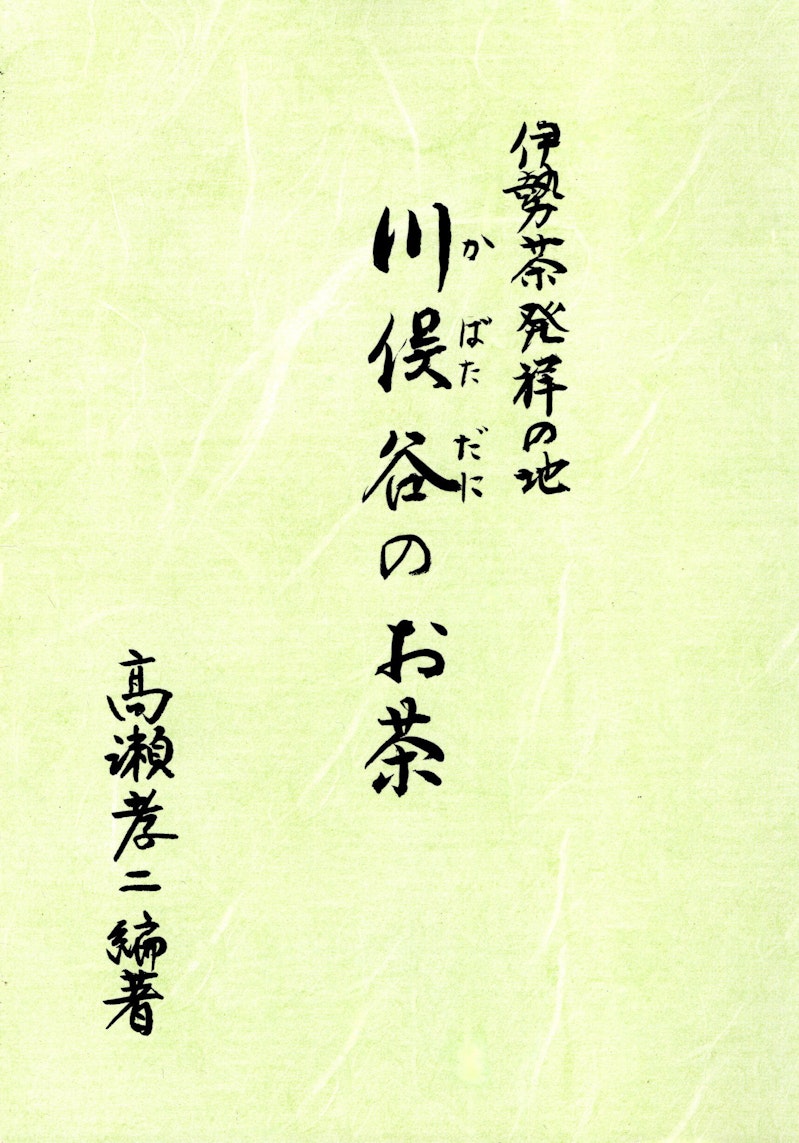 伊勢茶発祥の地
川俣谷のお茶
かばただに
高瀬孝二編著